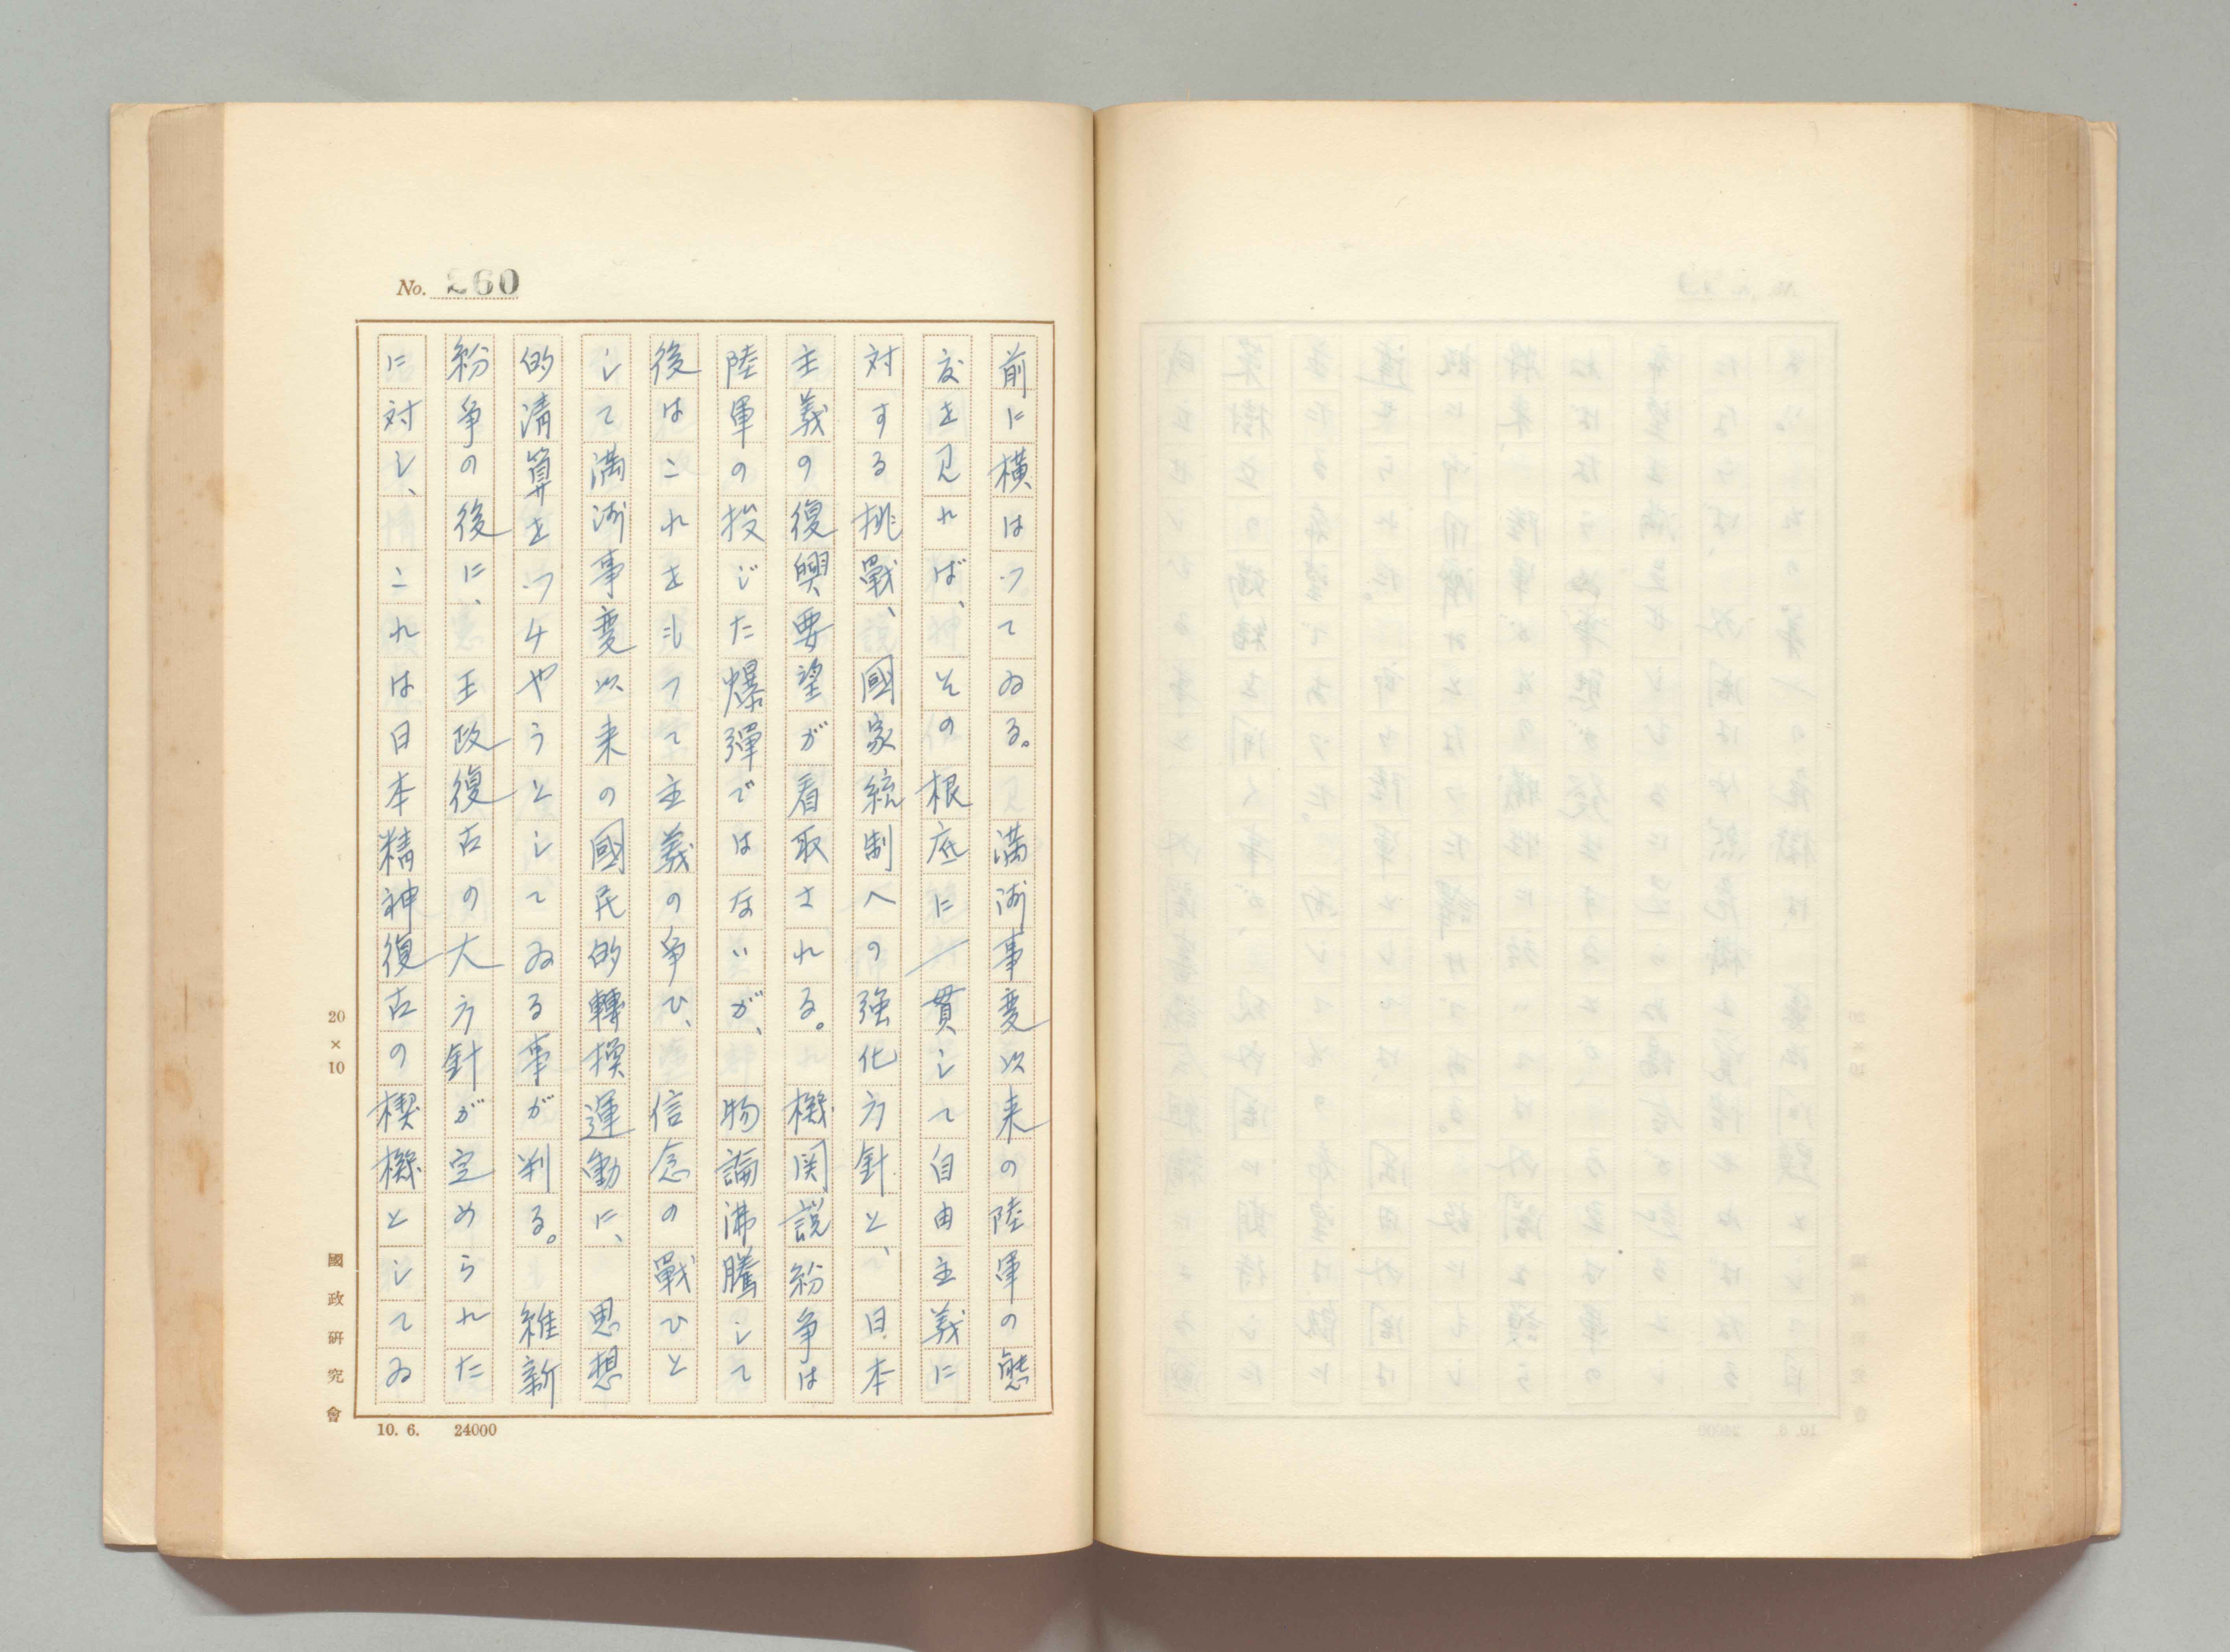 No. 260
前に横はつてゐる。　満洲事変以来の陸軍の態
度を見れば、その根底に一貫して自由主義に
対する挑戰、國家統制への強化方針と、日本
主義の復興要望が看取される。機関説紛争は
陸軍の投じた爆彈ではないが、物論沸騰して
後はこれをもつて主義の争ひ、信念の戰ひと
して満洲事変以来の國民的轉換運動に、思想
的清算をつけやうとしてゐる事が判る。　維新
紛争の後に、王政復古の大方針が定められた
に対し、これは日本精神復古の楔機としてゐ
20×10
國政研究會
10. 6.　24000